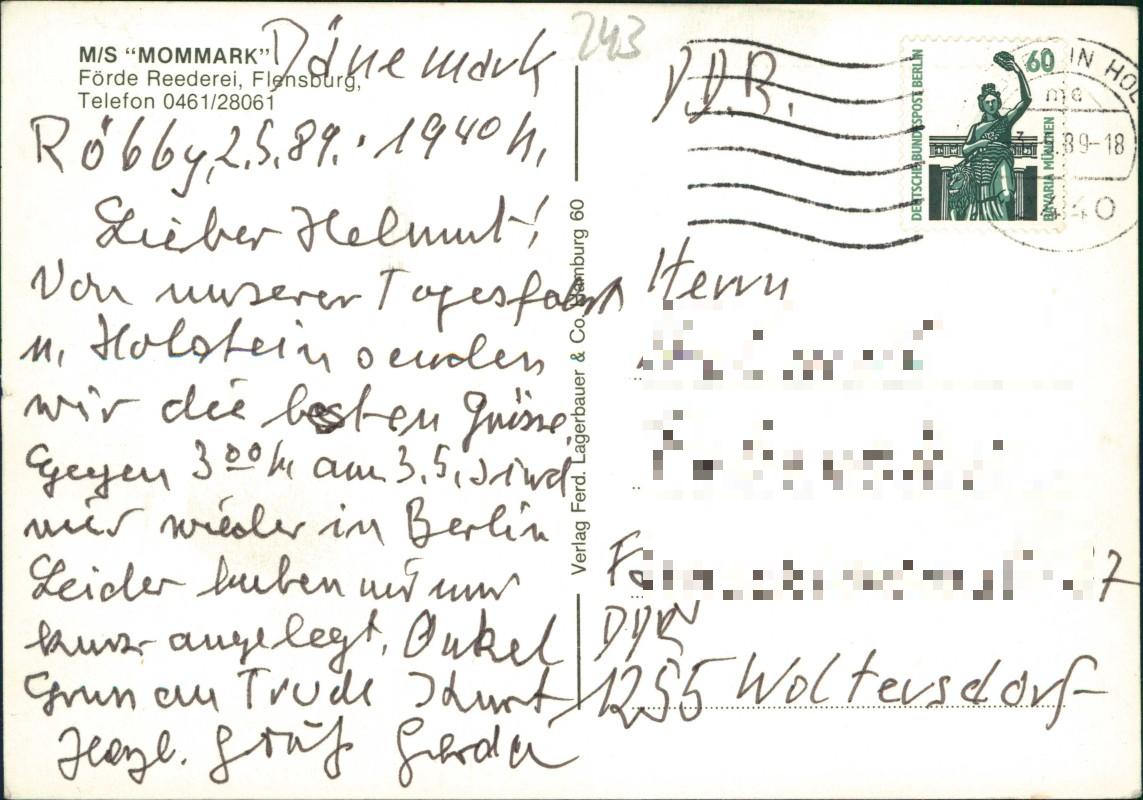 M/S “MOMMARK”
Förde Reederei, Flensburg,
Telefon 0461/28061
Dänemark
Röbby, 2.5.89. · 19 40 h.
Lieber Helmut!
Von unserer Tagesfahrt
n. Holstein senden
wir die besten Grüsse.
Gegen 3 00 h am 3.5. sind
wir wieder in Berlin
Leider haben wir nur
kurz angelegt. Onkel
Gruss an Trude Kurt
Herzl. Grüß Gerda
Verlag Ferd. Lagerbauer & Co. Hamburg 60
243
D.D.R.
DEUTSCHE BUNDESPOST BERLIN
60
BAVARIA MÜNCHEN
IN HOL
89-18
Herrn
7
DDR
1255 Woltersdorf